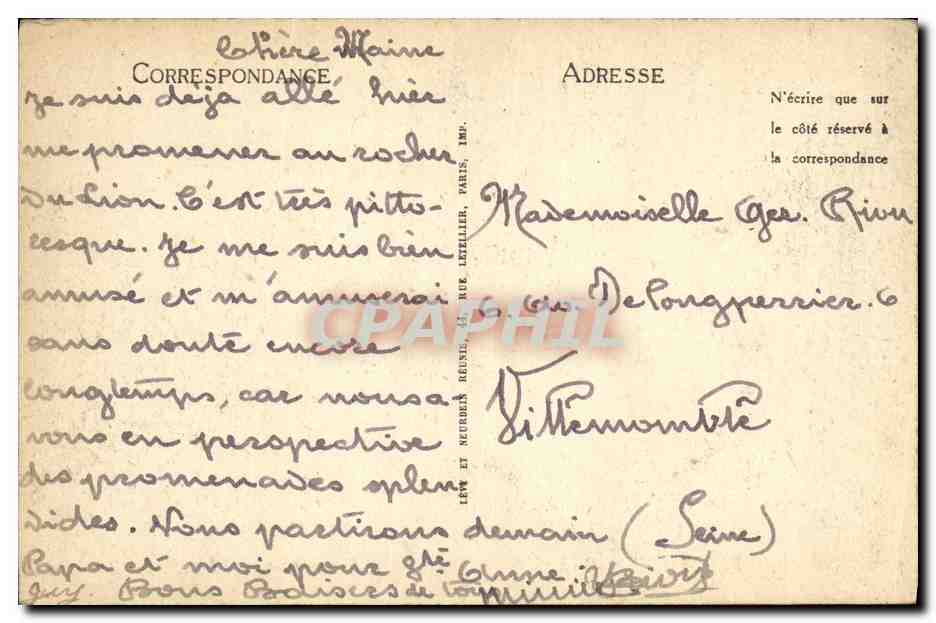 Chère Maine
CORRESPONDANCE
Je suis déja allé hier
me promener au rocher
du Lion. C'est très pitto-
resque. Je me suis bien
amusé et m'amuserai
sans doute encore
longtemps, car nous a-
vons en perspective
des promenades splen
dides. Nous partirons demain
Papa et moi pour gte Anse
Guy. Bons Baisers de
LÉVY ET NEURDEIN RÉUNIS, 44, RUE LETELLIER, PARIS, IMP.
ADRESSE
N'écrire que sur
le côté réservé à
la correspondance
Mademoiselle Riou
6. De Longperrier. 6
Villemomble
(Seine)
CPAPHIL